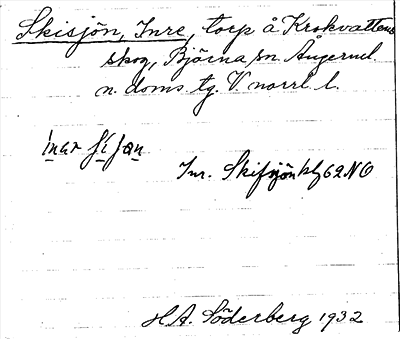 Skisjön, Inre, torp å Krokvattens
skog, Björna sn. Ångerml.
n. doms. tg. V. norrl. l.
Inr. Skifsjön bl 62 NO
H.A. Söderberg 1932